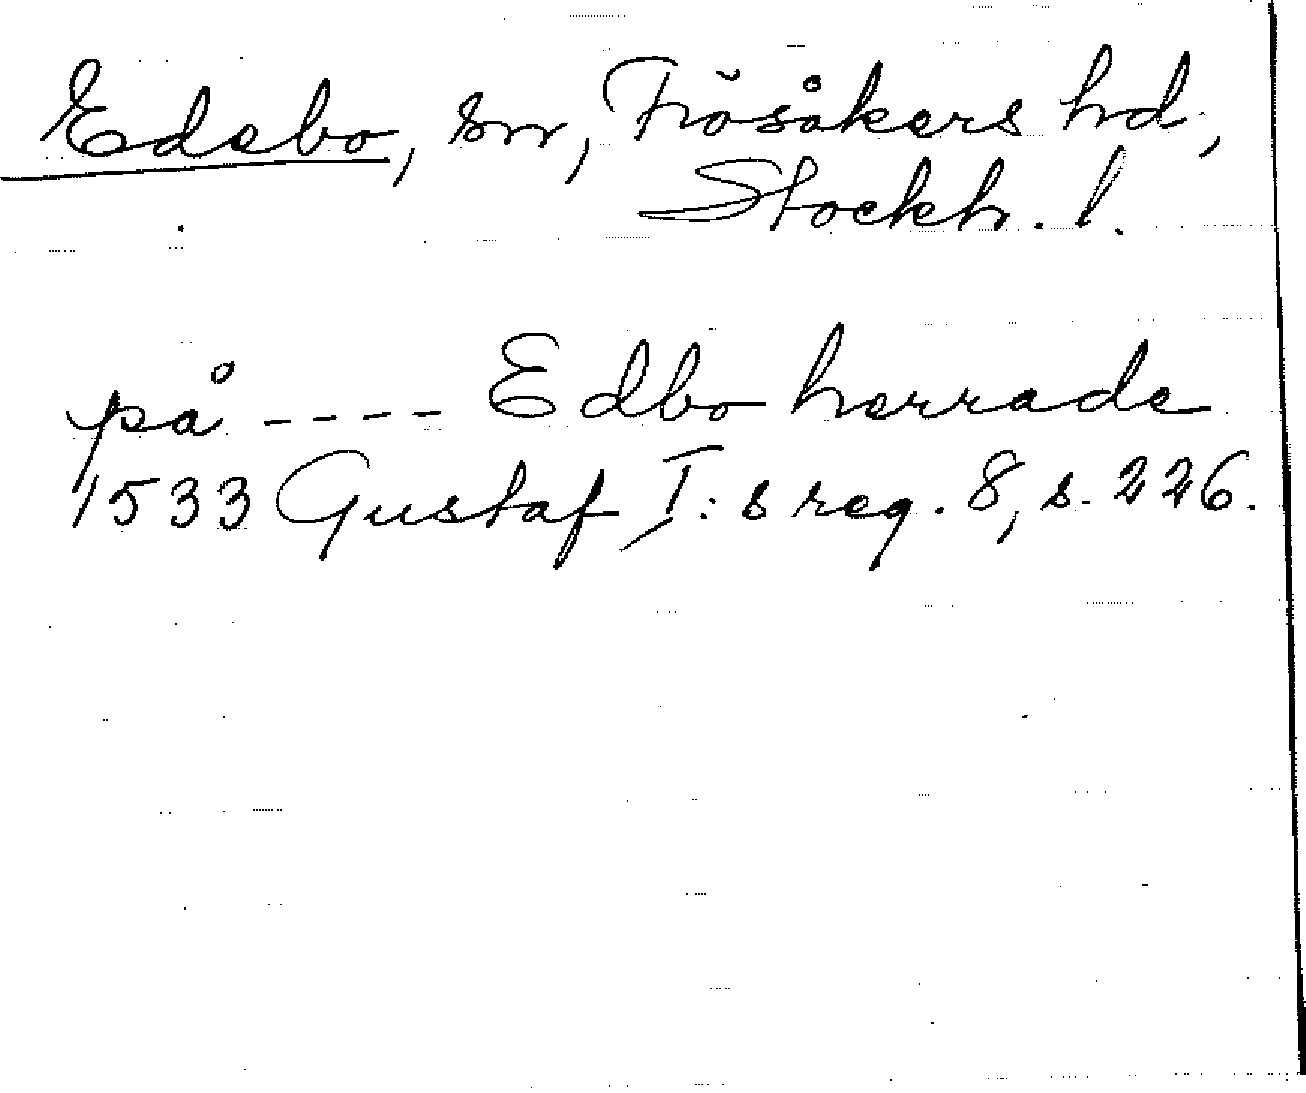 Edebo, sn, Frösåkers hd,
Stockh. l.
på ---- Edbo herrade
1533 Gustaf I:s reg. 8, s. 226.